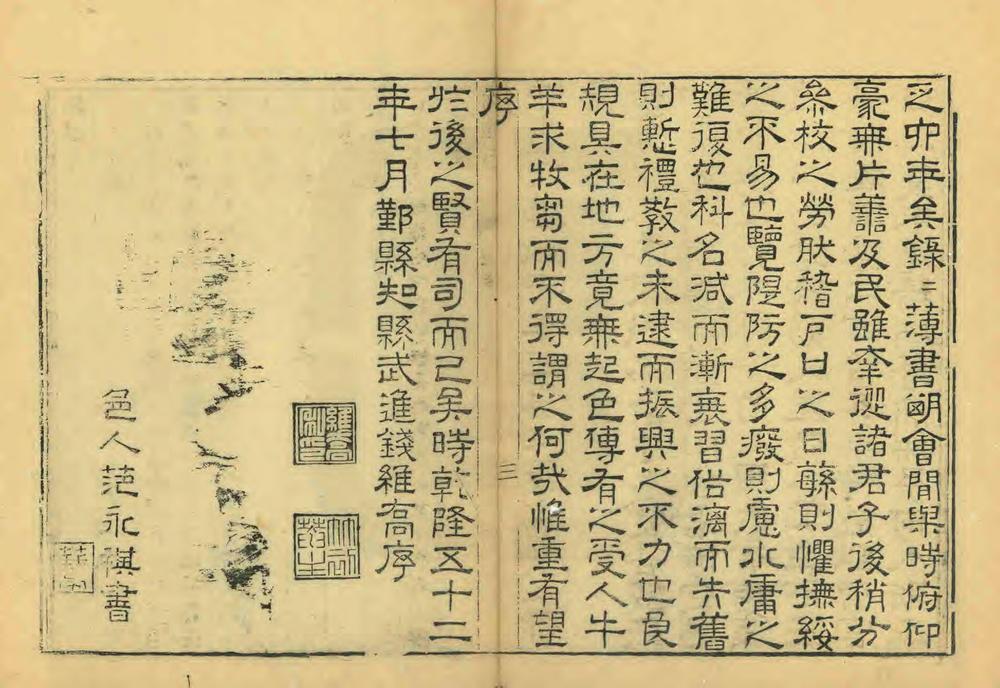 之卯年矣錄二薄書期會閒與時俯仰
豪無片善及民雖幸從諸君子後稍分
參校之勞肰稽戶口之日緐則懼撫綏
之不易也覽隄防之多癈則慮水庸之
難復也科名減而漸衰習俗漓而失舊
則慙禮教之未逮而振興之不力也良
規具在地方竟無起色傳有之受人牛
羊求牧芻而不得謂之何哉惟重有望
序
三
於後之賢有司而已矣時乾隆五十二
年七月鄞縣知縣武進錢維喬序
維喬私印
邑人范永祺書